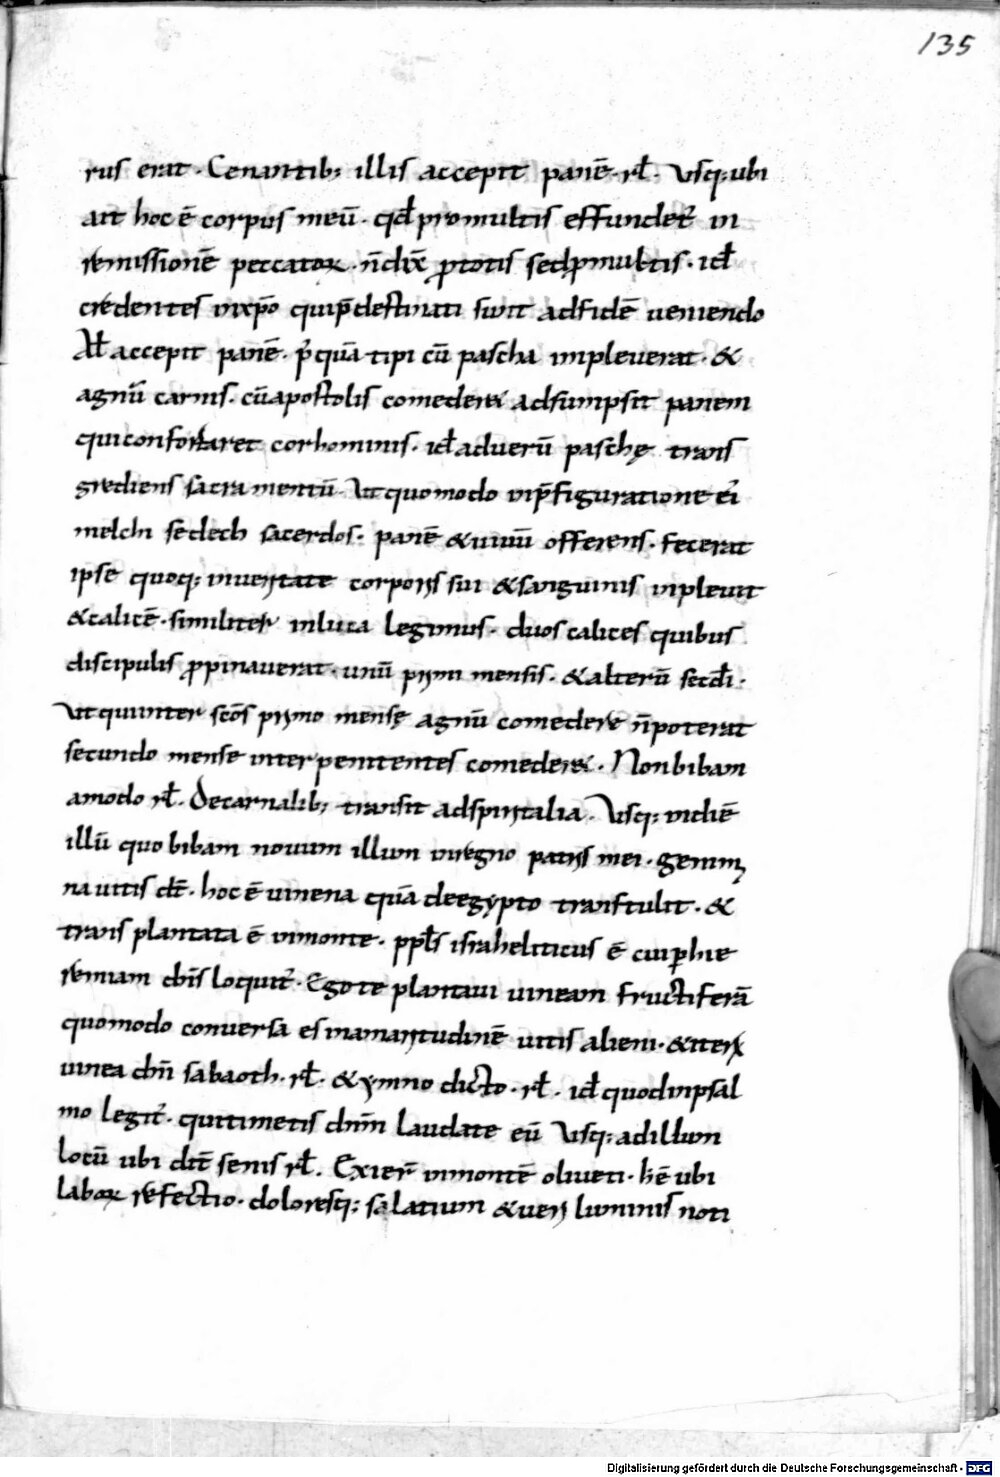 135
rus erat. Cenantib; illis accepit panē. rł. Vsq; ubi
ait hoc ē corpus meū. qđ pro multis effunder̄ in
remissionē peccatoꝝ. n̄ dix̄ ꝓ totis sed ꝓ multis. id̄
credentes in xp̄o qui p̄destinati sunt ad fidē ueniendo
Al̄ accepit panē. p̄quā tipicū pascha impleuerat. &
agnū carnis. cū apostolis comederet adsumpsit panem
qui confortaret cor hominis. id̄ ad uerū paschę trans
grediens sacramentū. Vt quomodo in p̄figuratione ei᾽
melchisedech sacerdos. panē & uinū offerens. fecerat
ipse quoq; in ueritate corporis sui & sanguinis inpleuit
& calicē. similiter in luca legimus. duos calices quibus
discipulis ꝓpinauerat. unū primi mensis. & alterū secđi.
Vt qui inter sc̄os primo mensę agnū comedere n̄ poterat
secundo mense inter penitentes comederet. Non bibam
amodo rł. De carnalib; transit ad spiritalia. Vsq; in diē
illū quo bibam nouum illum in regno patris mei. gemini
na uitis dt̄. hoc ē uinena quā de egypto transtulit. &
transplantata ē in monte. ppl̄s israheliticus ē cui ꝑ hie
remiam dn̄s loquit̄. Ego te plantaui uineam fructiferā
quomodo conuersa es in amaritudinē uitis alieni. & iteꝝ
uinea dn̄i sabaoth. rł. & ymno dicto. rł. id̄ quod in psal
mo legit̄. qui timetis dnm̄ laudate eū Vsq; ad illum
locū ubi dt̄ senis rł. Exier̄ in montē oliueti. h̄ ē ubi
laboꝝ refectio. dolorisq; salatium & ueri luminis noti
Digitalisierung gefördert durch die Deutsche Forschungsgemeinschaft - DFG